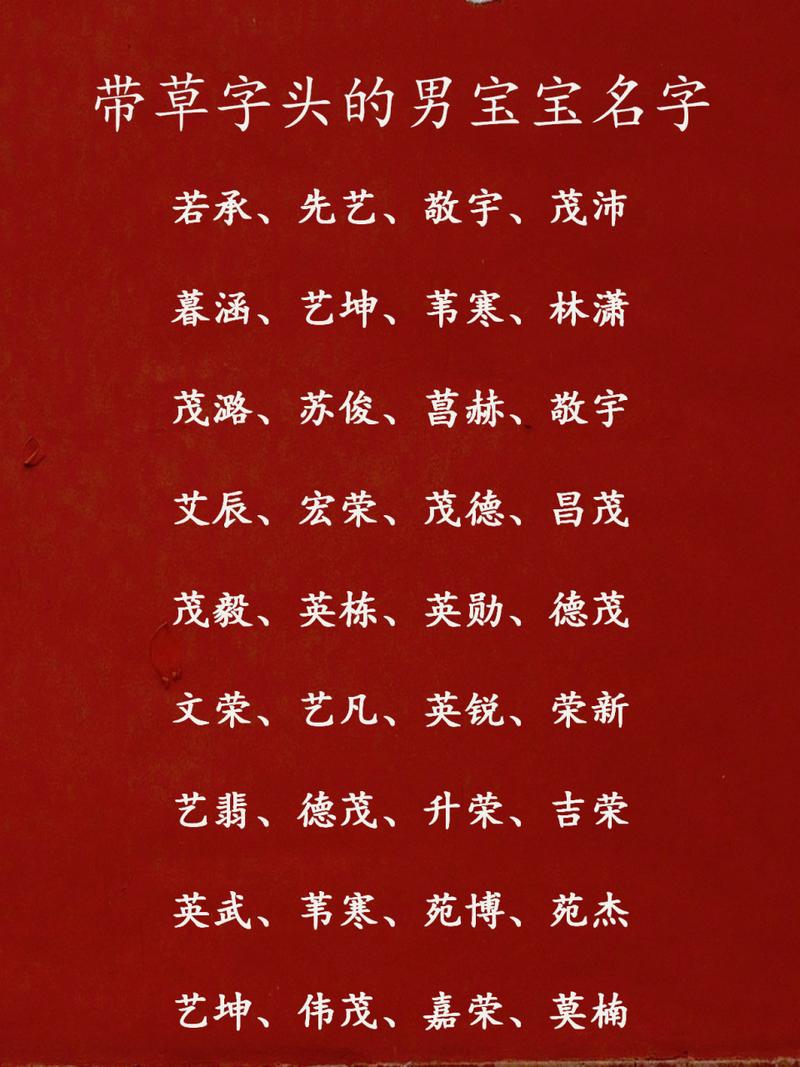 带草字头的男宝宝名字
若承、先艺、敬宇、茂沛
暮涵、艺坤、苇寒、林潇
茂潞、苏俊、菖赫、敬宇
艾辰、宏荣、茂德、昌茂
茂毅、英栋、英勋、德茂
文荣、艺凡、英锐、荣新
艺翡、德茂、升荣、吉荣
英武、苇寒、苑博、苑杰
艺坤、伟茂、嘉荣、莫楠